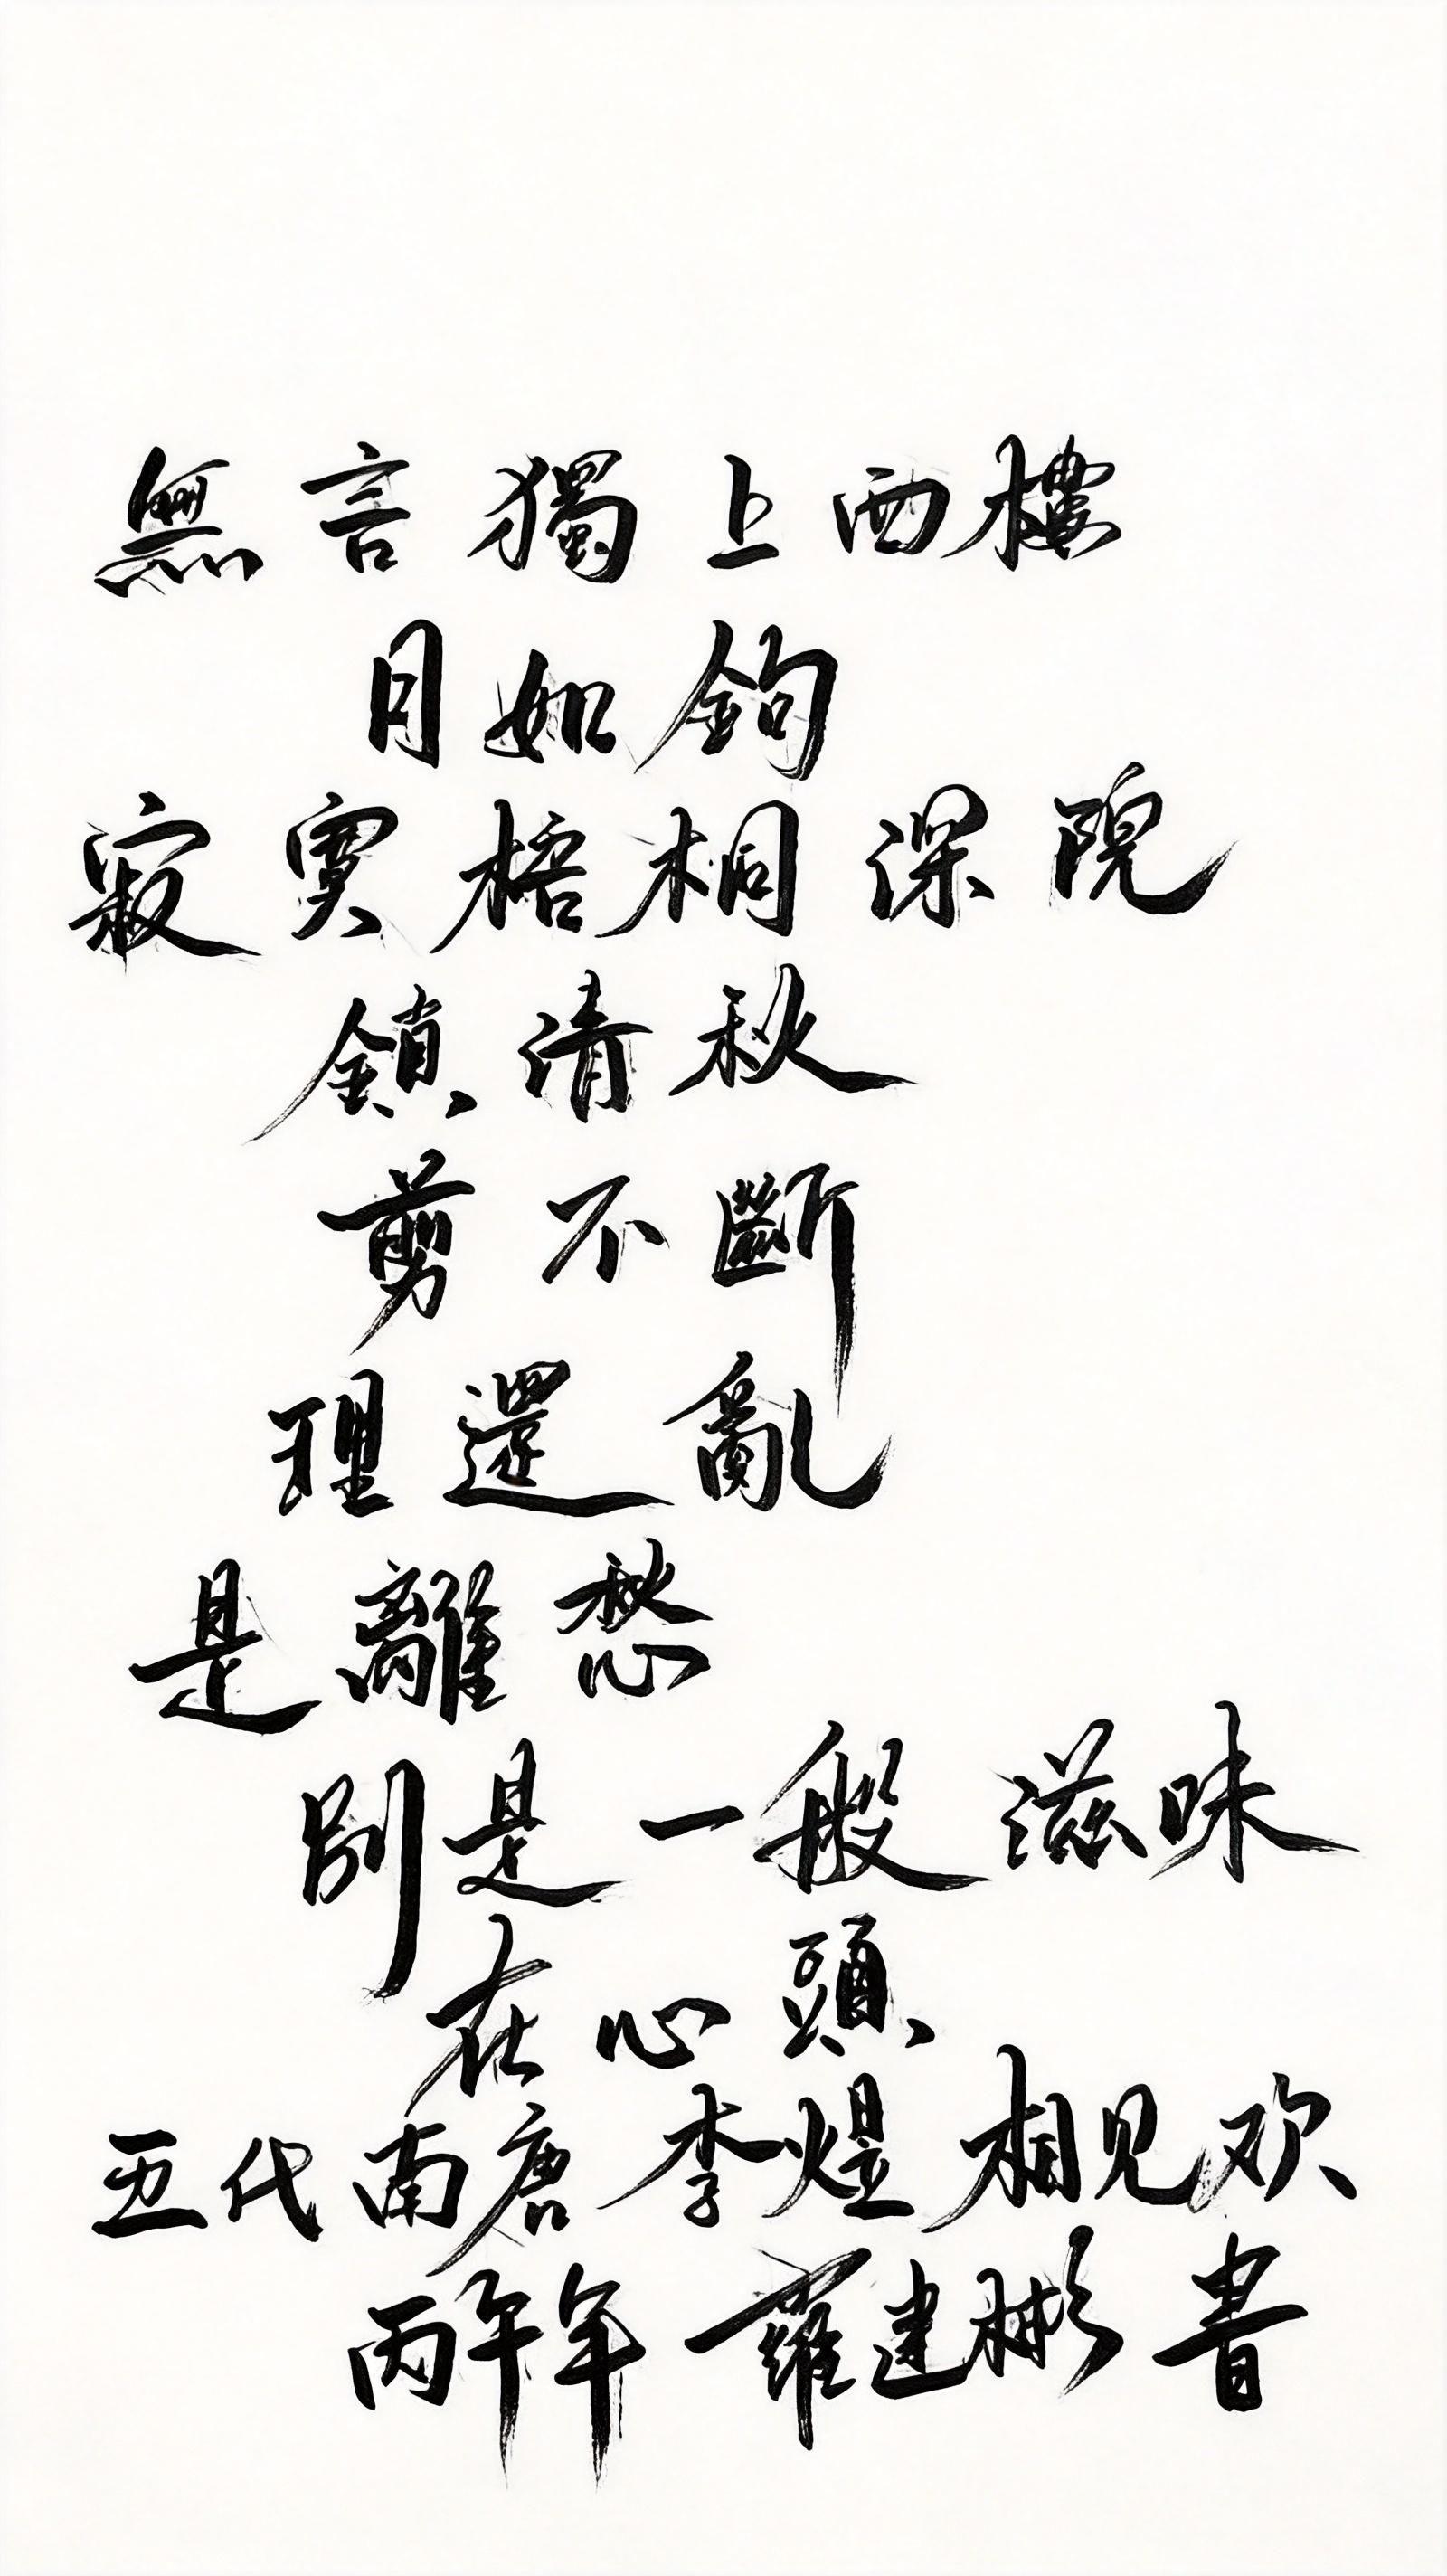 無言獨上西樓
月如鈎
寂寞梧桐深院
鎖清秋
剪不斷
理還亂
是離愁
別是一般滋味
在心頭
五代南唐李煜相見欢
丙午年羅建彬書